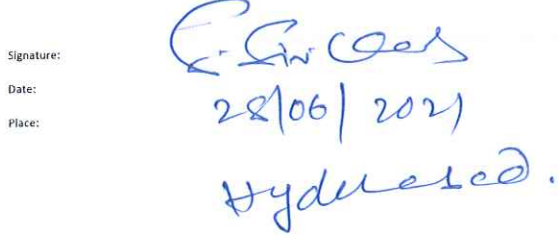 Signature:
Date: 28/06/2021
Place: Hyderabad.